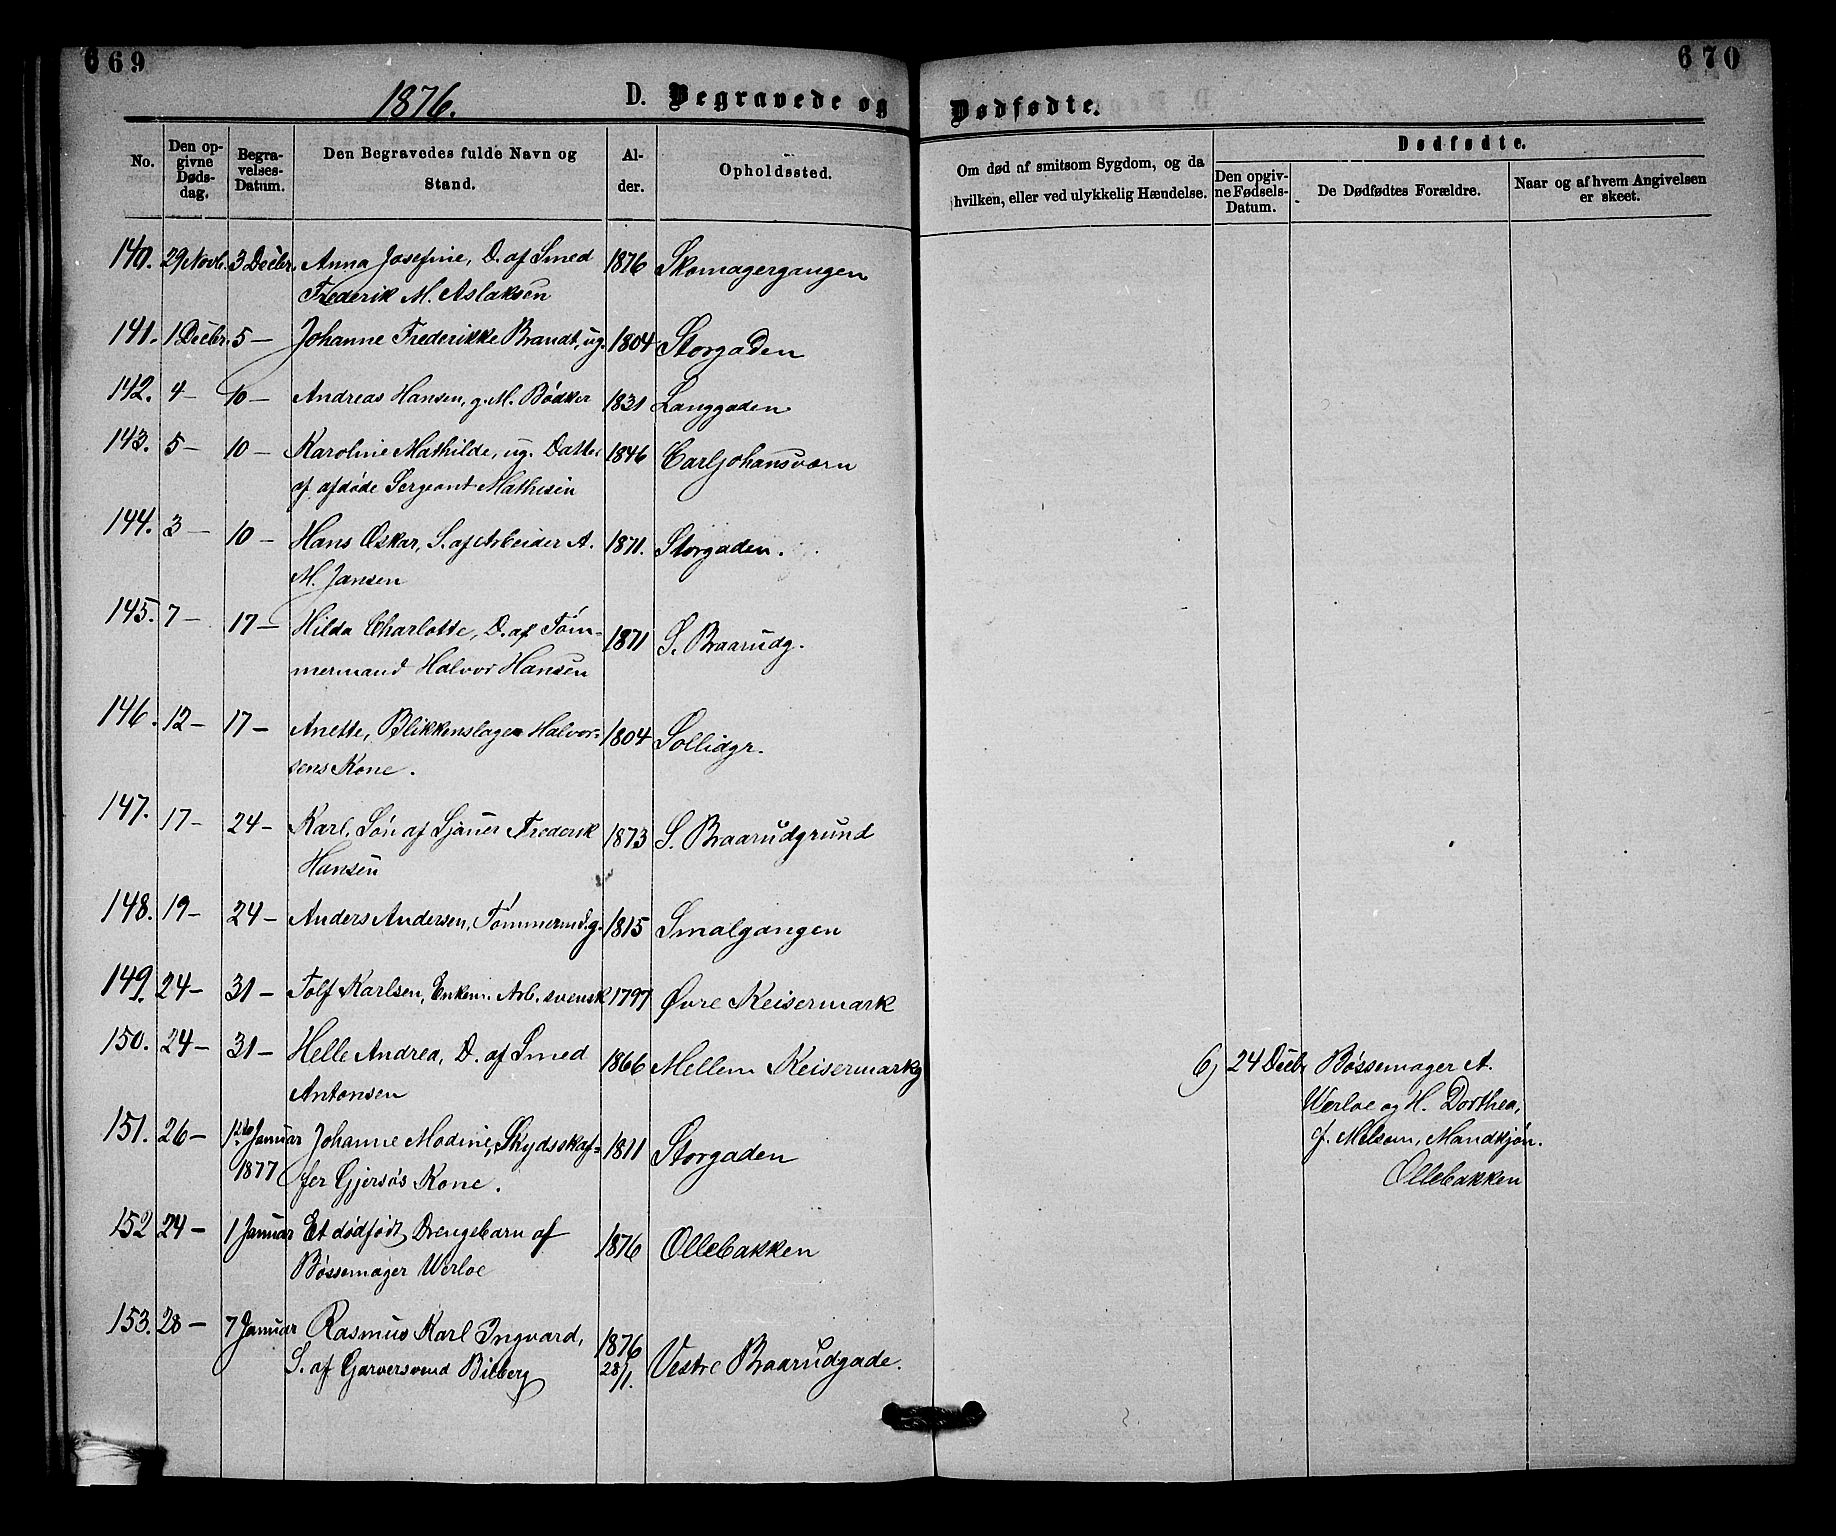 669
670
1876.
D. Begravede og Dødfødte.
No.
Den opgivne Dødsdag.
Begravelses-Datum.
Den Begravedes fulde Navn og Stand.
Alder.
Opholdssted.
Om død af smitsom Sygdom, og da hvilken, eller ved ulykkelig Hændelse.
Dødfødte.
Den opgivne Fødsels-Datum.
De Dødfødtes Forældre.
Naar og af hvem Angivelsen er skeet.
140. 29 Novb. 3 Decbr. Anna Josefine, D. af Smed 1876 Skomagergangen
Frederik M. Aslaksen
141. 1 Decbr. 5 — Johanne Frederikke Brandt, ug. 1804 Storgaden
142. 4 — 10 — Andreas Hansen, g. M. Bødker 1831 Langgaden
143. 5 — 10 — Karoline Mathilde, ug. Datter 1846 Carljohansværn
af afdøde Sergeant Mathisen
144. 3 — 10 — Hans Oskar, S. af Arbeider A. 1871. Storgaden.
M. Jansen
145. 7 — 17 — Hilda Charlotte, D. af Tøm- 1871 S. Braarudg.
mermand Halvor Hansen
146. 12 — 17 — Anette, Blikkenslager Halvor- 1804 Sollidgr.
sens Kone.
147. 17 — 24 — Karl, Søn af Sjauer Frederik 1873 S. Braarudgrund
Hansen
148. 19 — 24 — Anders Andersen, Tømmermd. g. 1815 Smalgangen
149. 24 — 31 — Tolf Karlsen, Enkem. Arb. svensk 1797 Øvre Keisermark
150. 24 — 31 — Helle Andrea, D. af Smed 1866 Mellem Keisermarkg
Antonsen
151. 26 — 1ste Januar Johanne Modine, Skydsskaf- 1811 Storgaden
1877 fer Gjersøs Kone.
152 24 — 1 Januar Et dødfødt Drengebarn af 1876 Ollebakken
Bøssemager Werloe
153. 28 — 7 Januar Rasmus Karl Ingvard, 1876
S. af Garversvend Bilberg 28/1. Vestre Braarudgade.
6) 24 Decbr Bøssemager A.
Werloe og H. Dorthea,
f. Melsom, Mandkjøn.
Ollebakken